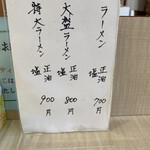 ラーメン
正油
塩
700円
大盛ラーメン
正油
塩
800円
特大ラーメン
正油
塩
900円